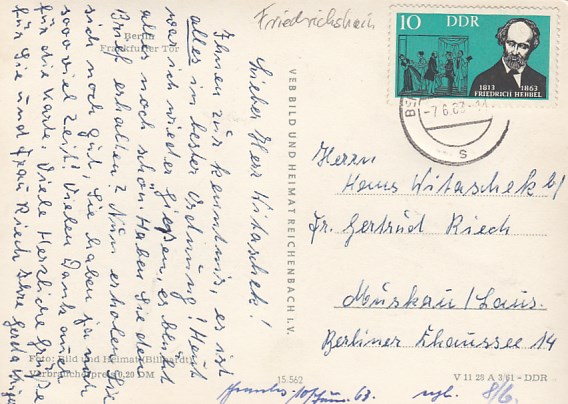 Friedrichshain
10 DDR
1813 1863
FRIEDRICH HEBBEL
-7.6.63
S
Berlin
Frankfurter Tor
Lieber Herr Witaschek!
Ihnen zur Kenntnis, es ist
alles in bester Ordnung! Heut
war ich wieder gießen, es blüht
alles noch schön. Haben Sie den
Brief erhalten? Nun erholen Sie
sich noch gut, Sie haben ja noch
sooo viel Zeit! Vielen Dank auch
für die Karte. Viele Herzliche Grüße
für Sie und Frau Riech Ihre
VEB BILD UND HEIMAT REICHENBACH I. V.
Herrn
Hans Witaschek b/
Fr. Gertrud Riech
Muskau/Laus.
Berliner Chaussee 14
Foto: Bild und Heimat (Billhardt)
Verbraucherpreis 0,20 DM
15 562
V 11 28 A 3/61 - DDR
10/ 63. 8/6.